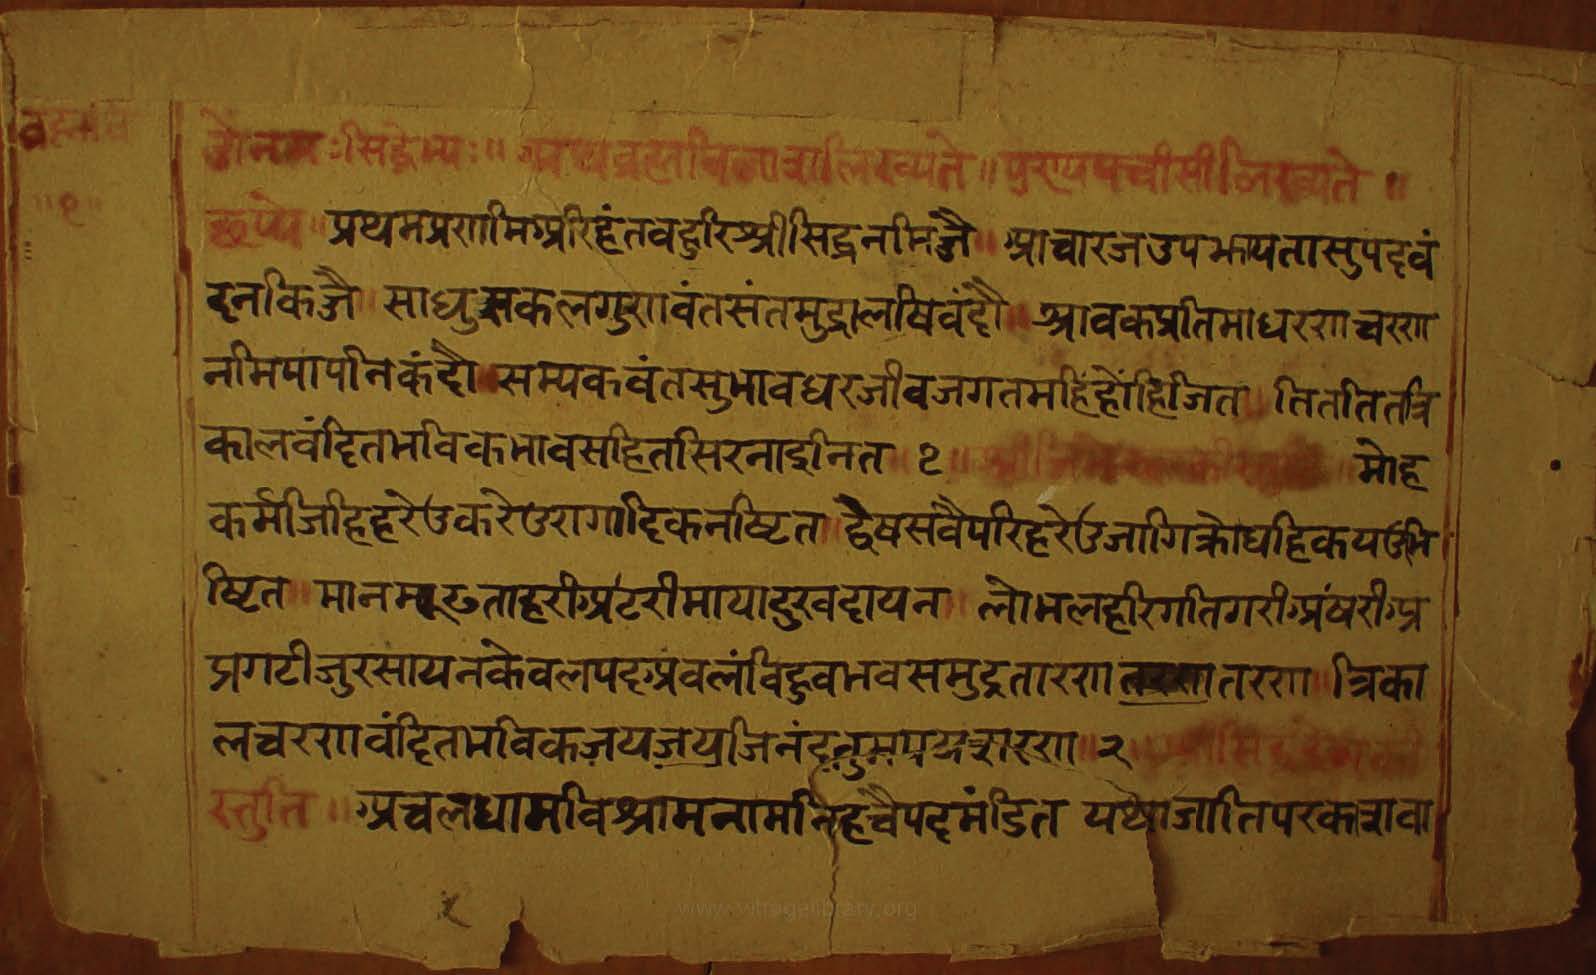 ब्रह्मवि
॥१॥
ॐनमःसिद्धेभ्यः॥ अथब्रह्मविलासलिख्यते॥ पुण्यपच्चीसीलिख्यते॥
छप्पे॥ प्रथमप्रणमिअरिहंतवहुरिश्रीसिद्धनमिज्जै॥ आचारजउपझायतासुपदवं
दनकिज्जै॥ साधुसकलगुणवंतसंतमुद्रालषिवंदौ॥ श्रावकप्रतिमाधरणचरण
नमिपापनिकंदौ॥ सम्यकवंतसुभावधरजीवजगतमहिंहोंहिजित॥ तिततितत्रि
कालवंदितभविकभावसहितसिरनाइनित १॥ मोह
कर्मजिहिहरेउकरेउरागादिकनष्टित॥ द्वेषसवैपरिहरेउजागिक्रोधहिकयउभि
ष्टित॥ मानमूढताहरीअटरीमायादुखदायन॥ लोभलहरिगतिगरीअंषरीअ
प्रगटीजुरसायनकेवलपदअवलंविहुवभवसमुद्रतारणतरण॥ त्रिका
लचरणवंदितभविकजयजयजिनंदतुमपयसरण २॥
स्तुति॥ अचलधामविश्रामनामनिहचैपदमंडित यथाजातिपरकासवा
१
www.vitragelibrary.org